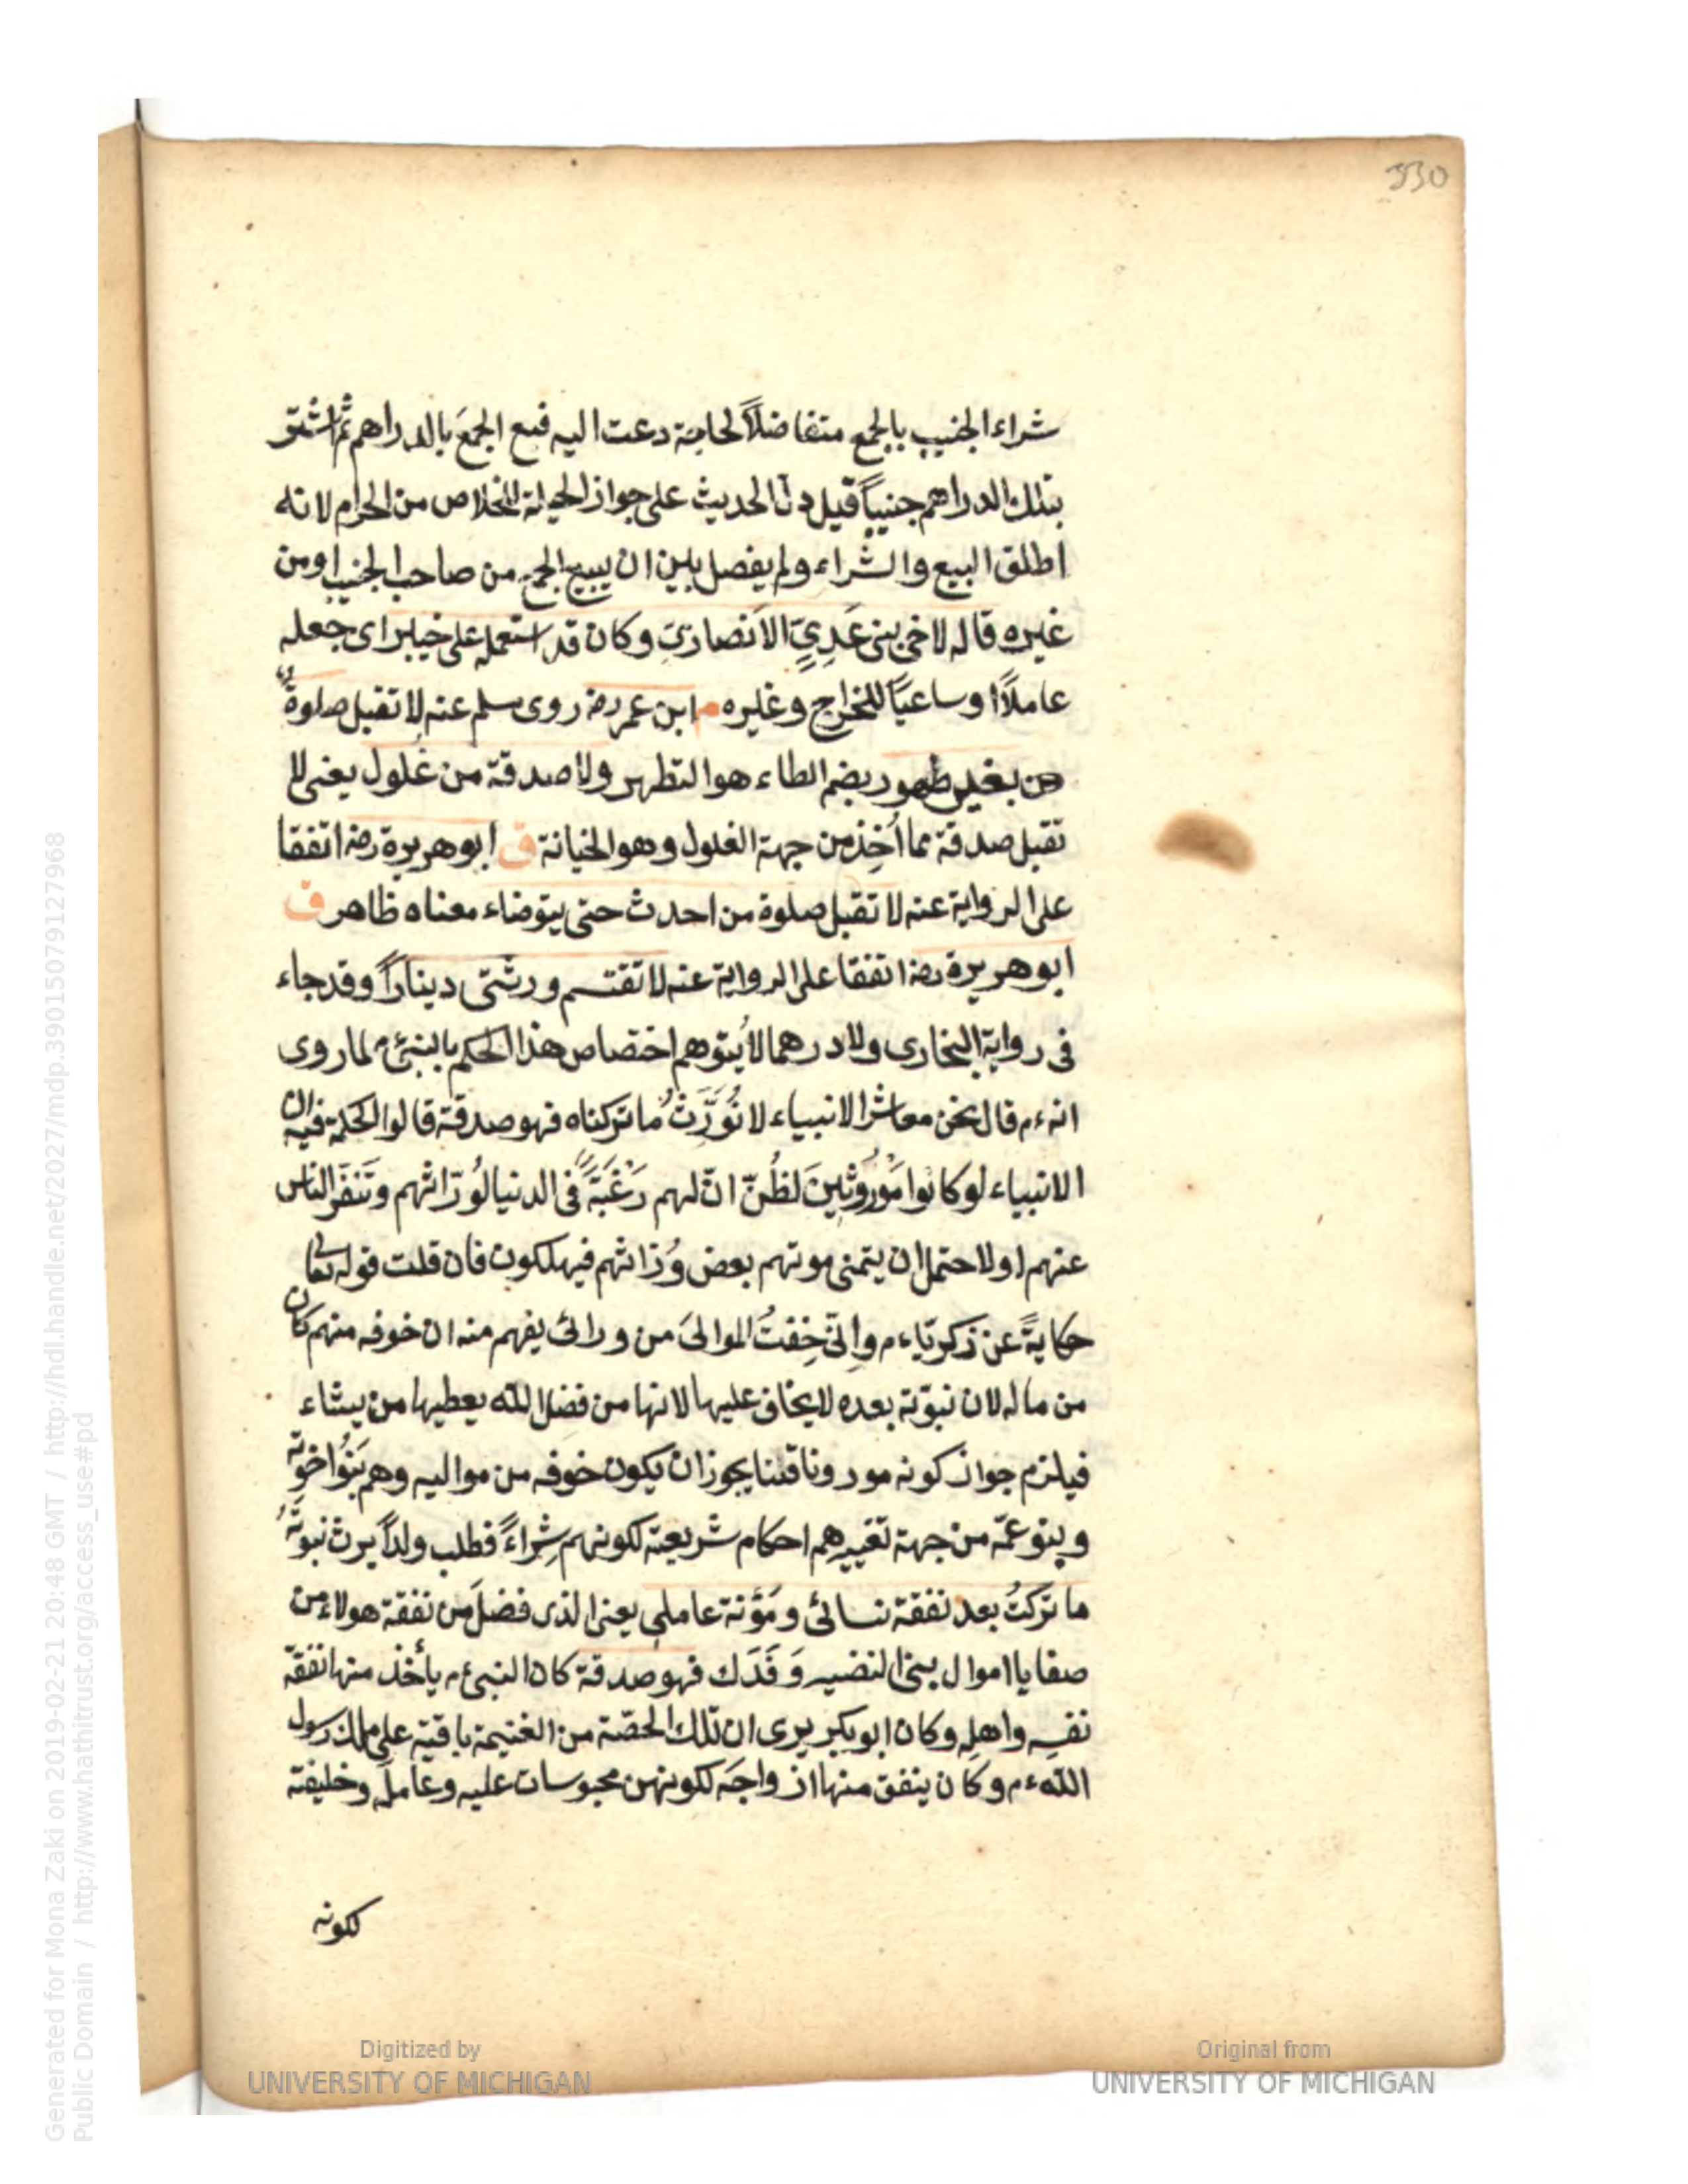 330
شراء الجنيب بالجمع متفاضلاً لحاجة دعت اليه فبع الجمعَ بالدراهم ثم اشتر
بتلك الدراهم جنيباً قيل دلّ الحديث على جواز الحيلة للخلاص من الحرام لانه
اطلق البيع والشراء ولم يفصل بين ان يبيع الجمع من صاحب الجنيب او من
غيره قاله لاخى بنى عَدِيٍّ الاَنصاريّ وكان قد استعمله على خيبر اى جعله
عاملاً او ساعياً للخراج وغيره م ابن عمر رضه روى مسلم عنه لا تقبل صلوةٌ
من بغير طهور بضم الطاء هو التطهر ولا صدقة من غلول يعنى لا
تقبل صدقة مما اُخِذ من جهة الغلول وهو الخيانة ق ابو هريرة رضه اتفقا
على الرواية عنه لا تقبل صلوة من احدث حتى يتوضاء معناه ظاهر ق
ابو هريرة رضه اتفقا على الرواية عنه لا تقتسم ورثتى ديناراً وقد جاء
فى رواية البخارى ولا درهما لا يُتوهم اختصاص هذا الحكم بالنبى ءم لما روى
انه ءم قال نحن معاشر الانبياء لا نُوَرَّثُ ما تركناه فهو صدقة قالوا الحكمة فيه ان
الانبياء لو كانوا مَوْرُوثِينَ لظُنّ انّ لهم رَغْبَةً فى الدنيا لوُرّاثهم وتَنفّر الناس
عنهم اولا احتمل ان يتمنى موتهم بعض وُرّاثهم فيهلكون فان قلت قوله تعالى
حكايةً عن زكريّاء ءم وانّى خِفتُ الموالىَ من ورائى يفهم منه ان خوفه منهم كان
من ماله لان نبوّته بعده لا يخاف عليها لانها من فضل الله يعطيها من يشاء
فيلزم جواز كونه موروثا قلنا يجوز ان يكون خوفه من مواليه وهم بَنُوا اخوته
وبنو عمّه من جهة تغييرهم احكام شريعته لكونهم شِراءً فطلب ولداً يرث نبوتَهُ
ما تركتُ بعد نفقة نسائى ومَؤُنة عاملى يعنى الذى فضلَ من نفقة هولاء من
صفايا اموال بنى النضير وَفَدَك فهو صدقة كان النبى ءم يأخذ منها نفقة
نفسِه واهلِه وكان ابو بكر يرى ان تلك الحصّة من الغنيمة باقية على ملك رسول
الله ءم وكان ينفق منها ازواجَه لكونهن محبوسات عليه وعاملَه وخليفته
لكونه
Digitized by
UNIVERSITY OF MICHIGAN
Original from
UNIVERSITY OF MICHIGAN
Generated for Mona Zaki on 2019-02-21 20:48 GMT / http://hdl.handle.net/2027/mdp.39015079127968
Public Domain / http://www.hathitrust.org/access_use#pd